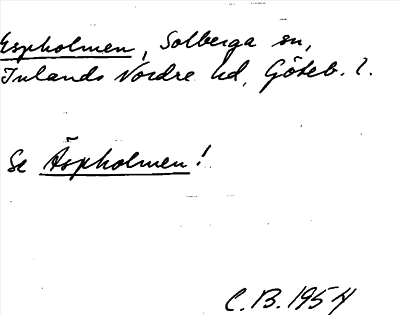 Espholmen, Solberga sn,
Inlands Nordre hd, Göteb. l.
Se Äspholmen!
C.B. 1954